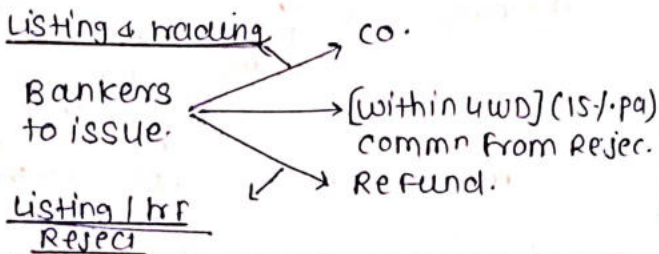 Listing & trading
CO.
Bankers
to issue.
[Within 4WD] (15%.pa)
commn From Rejec.
Refund.
Listing / trf
Reject